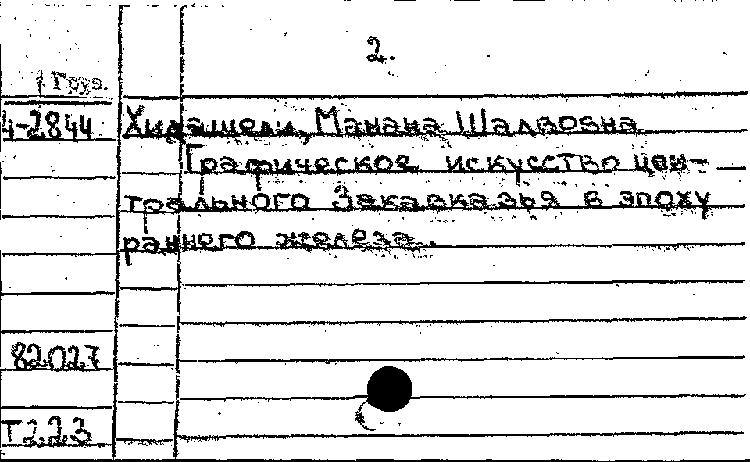 2.
Груз.
4-2844 Хидашели, Манана Шалвовна
Графическое искусство цен-
трального Закавказья в эпоху
раннего железа.
82.027
Т223